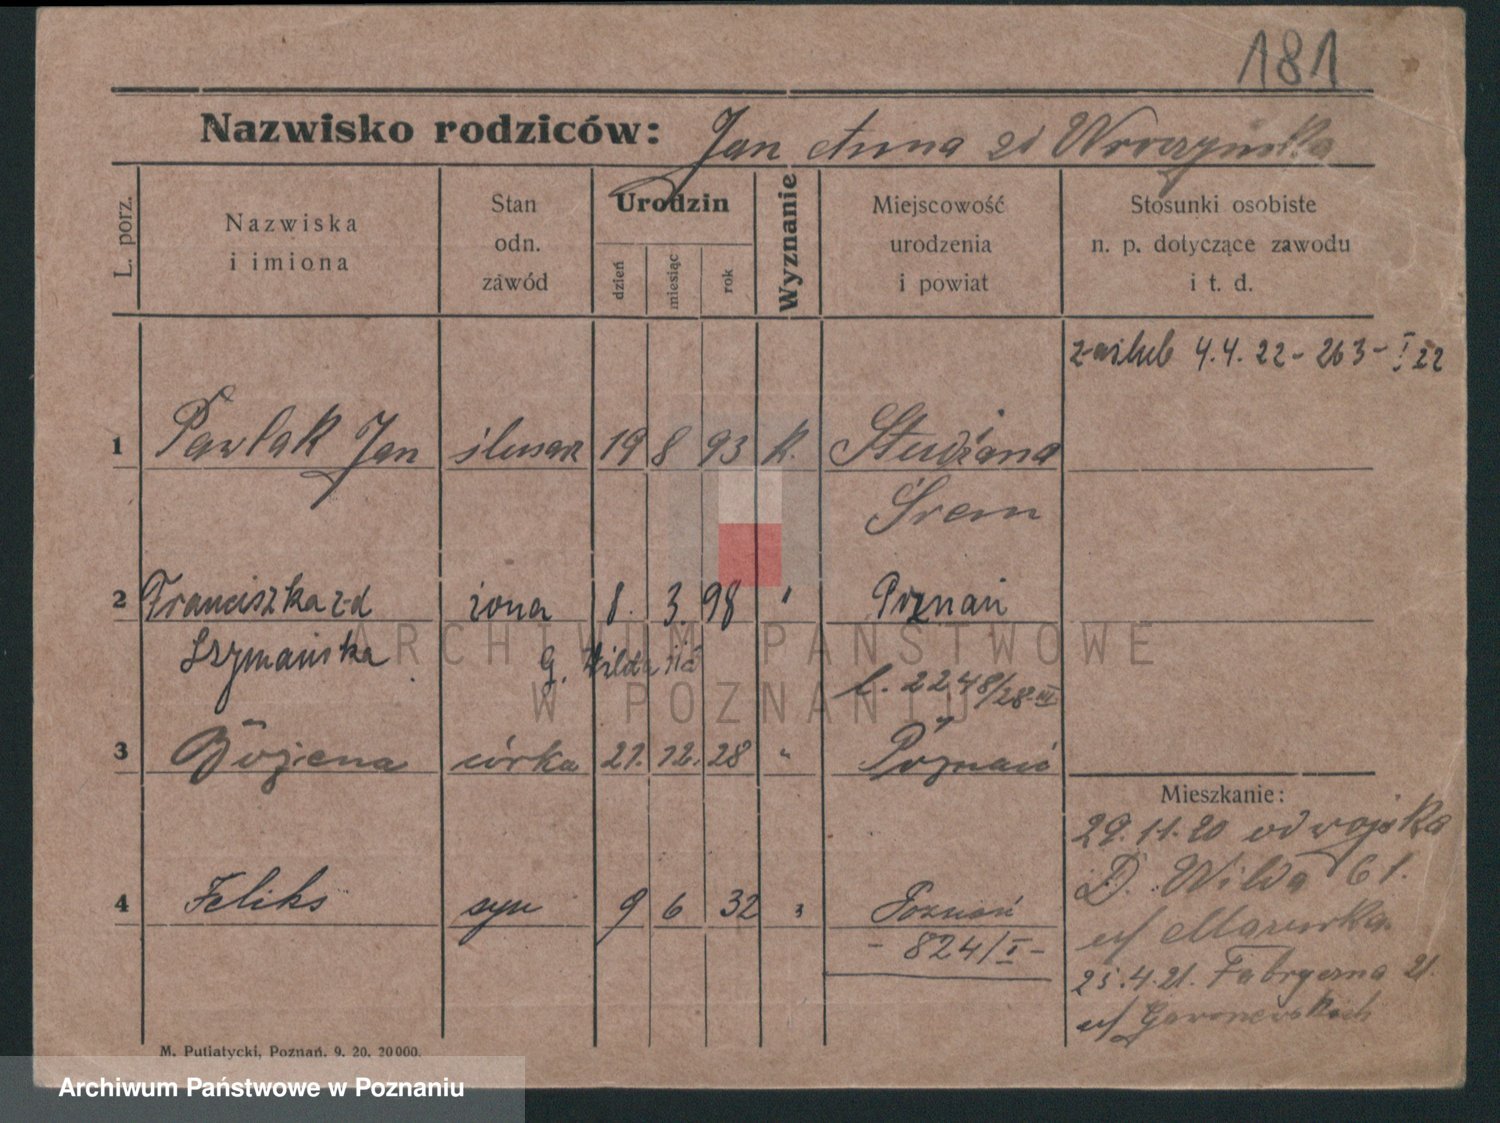 181
Nazwisko rodziców: Jan Anna zd
L. porz.
Nazwiska
i imiona
Stan
odn.
zawód
Urodzin
dzień
miesiąc
rok
Wyznanie
Miejscowość
urodzenia
i powiat
Stosunki osobiste
n. p. dotyczące zawodu
i t. d.
zaślub 4.4.22 - 263 - I 22
1 Pawlak Jan ślusarz 19 8 93 k. Studziana
Śrem
2 Franciszka z-d żona 8. 3. 98 " Poznań
Szymańska G. Wilda
l. 2248/28 III
3 Bożena córka 21. 12. 28 " Poznań
Mieszkanie:
29.11.20 od wojska
D. Wilda 61.
u/ Mazurka.
4 Feliks syn 9 6 32 " Poznań
- 824/I -
25.4.21. Fabryczna 21.
M. Putiatycki, Poznań. 9. 20. 20000.
ARCHIWUM PAŃSTWOWE
W POZNANIU
Archiwum Państwowe w Poznaniu